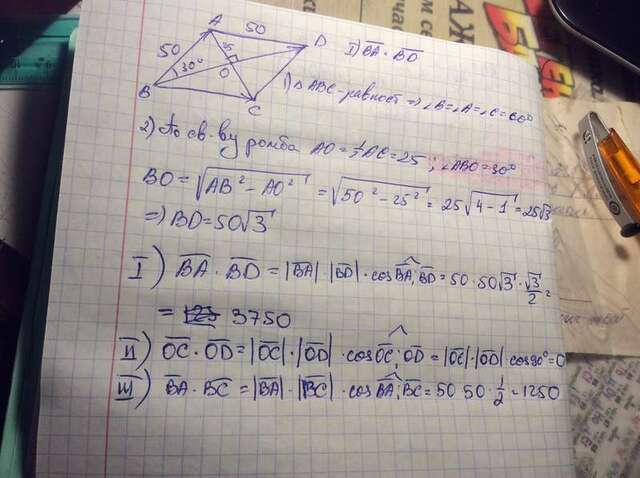 A 50 D
50 25
30° O
B C
I) BA · BD
1) △ABC-равност ⇒ ∠B=∠A=∠C=60°
2) По св-ву ромба AO = ½AC = 25; ∠ABO=30°
BO = √(AB² - AO²) = √(50² - 25²) = 25√(4-1) = 25√3
⇒) BD = 50√3
I) BA · BD = |BA| · |BD| · cos BA; BD = 50 · 50√3 · √3/2 =
= 3750
II) OC · OD = |OC| · |OD| · cos OC; OD = |OC| · |OD| · cos 90° = 0
III) BA · BC = |BA| · |BC| · cos BA; BC = 50 50 · ½ = 1250